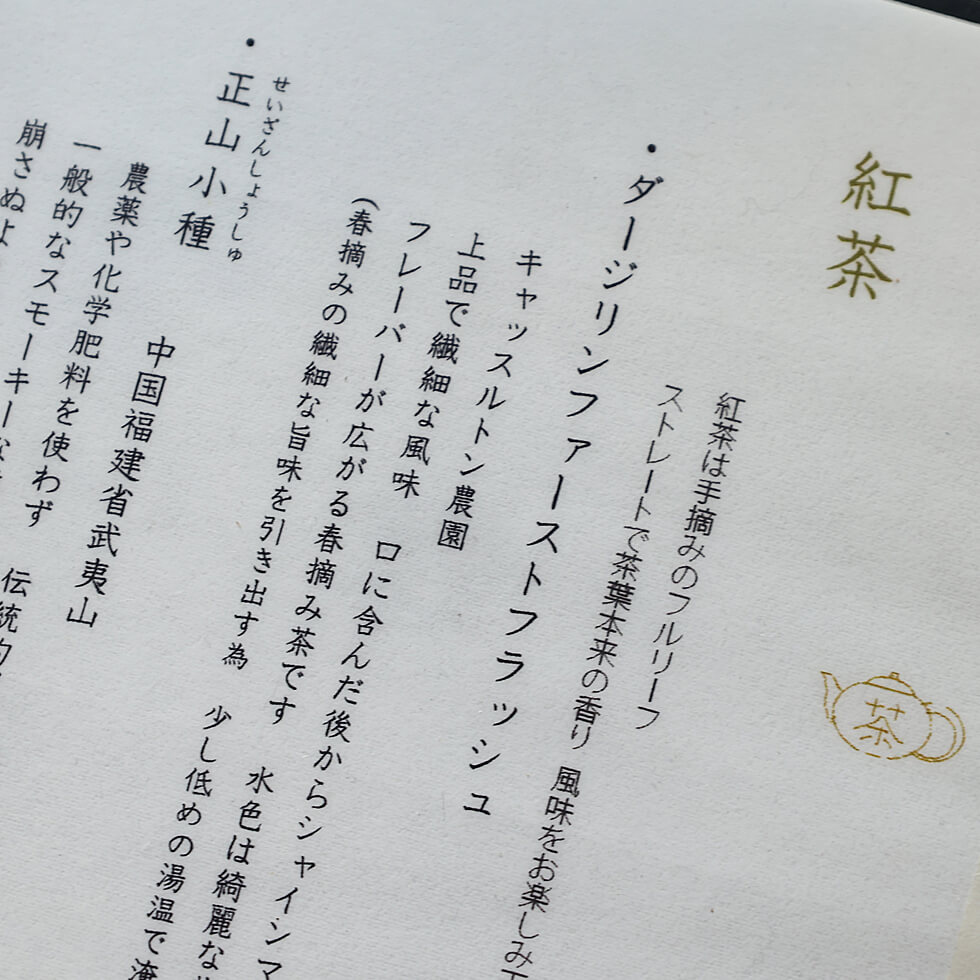 紅茶
茶
紅茶は手摘みのフルリーフ
ストレートで茶葉本来の香り 風味をお楽しみ下
・ダージリンファーストフラッシュ
キャッスルトン農園
上品で繊細な風味 口に含んだ後からシャインマ
フレーバーが広がる春摘み茶です 水色は綺麗な
(春摘みの繊細な旨味を引き出す為 少し低めの湯温で淹
・正山小種
せいざんしょうしゅ
中国福建省武夷山
農薬や化学肥料を使わず 伝統的
一般的なスモーキーな
崩さぬよ